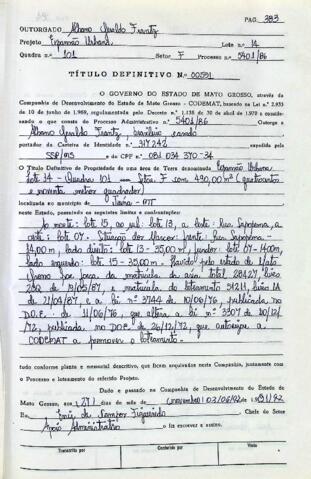 PAG. 383
OUTORGADO Albano Geraldo Frantz
Projeto Expansão Urbana Lote nº 14
Quadra nº 101 Setor F Processo nº 5401/86
TÍTULO DEFINITIVO Nº 00591
O GOVERNO DO ESTADO DE MATO GROSSO, através da
Companhia de Desenvolvimento do Estado de Mato Grosso - CODEMAT, baseado na Lei n.º 2.935
de 10 de junho de 1969, regulamentada pelo Decreto N.º 1.138 de 30 de abril de 1970 e consi-
derando o que consta do Processo Administrativo nº 5401/86 Outorga a
Albano Geraldo Frantz, brasileiro casado
portador da Carteira de Identidade nº 317242
SSP/MS e do CPF nº 081 034 370-34
O Título Definitivo de Propriedade de uma área de Terra denominada Expansão Urbana
Lote 14 - Quadra 101 - Setor F com 490,00 m² (quatrocentos
e noventa metros quadrados)
localizada no município de Juara - MT
neste Estado, possuindo os seguintes limites e confrontações:
Ao norte: lote 15, ao sul: lote 13, a leste: Rua
oeste: lote 07. Situação dos Marcos: frente: Rua
14,00 m, lado direito: lote 13 - 35,00 m, fundos: lote 07 - 14,00 m
lado esquerdo: lote 15 - 35,00 m. Havido pelo estado de
por força da matrícula da área total 28427, livro
2BQ de 19/05/87, e matrícula do loteamento 51211, livro 1A
de 21/04/87 e a lei nº 3744 de 10/06/76, publicada no
D.O.E. de 11/06/76, que altera a lei nº 3307 de 20/12/
72, publicada no D.O.E. de 26/12/72, que autoriza a
CODEMAT a promover o loteamento.
tudo conforme planta e memorial descritivo, que ficam arquivados nesta Companhia, juntamente com
o Processo e loteamento do referido Projeto.
Dado e passado na Companhia de Desenvolvimento do Estado de
Mato Grosso, aos (27) dias do mês de (novembro) 03/06/92 de 1991/92
Eu, Enir de Campos Figueiredo Chefe do Setor
Apoio Administrativo o fiz escrever e assino.
Transcrito por Conferido por Visto